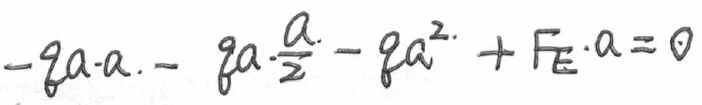 -qa·a. - qa·a/2 - qa². + F_E·a = 0